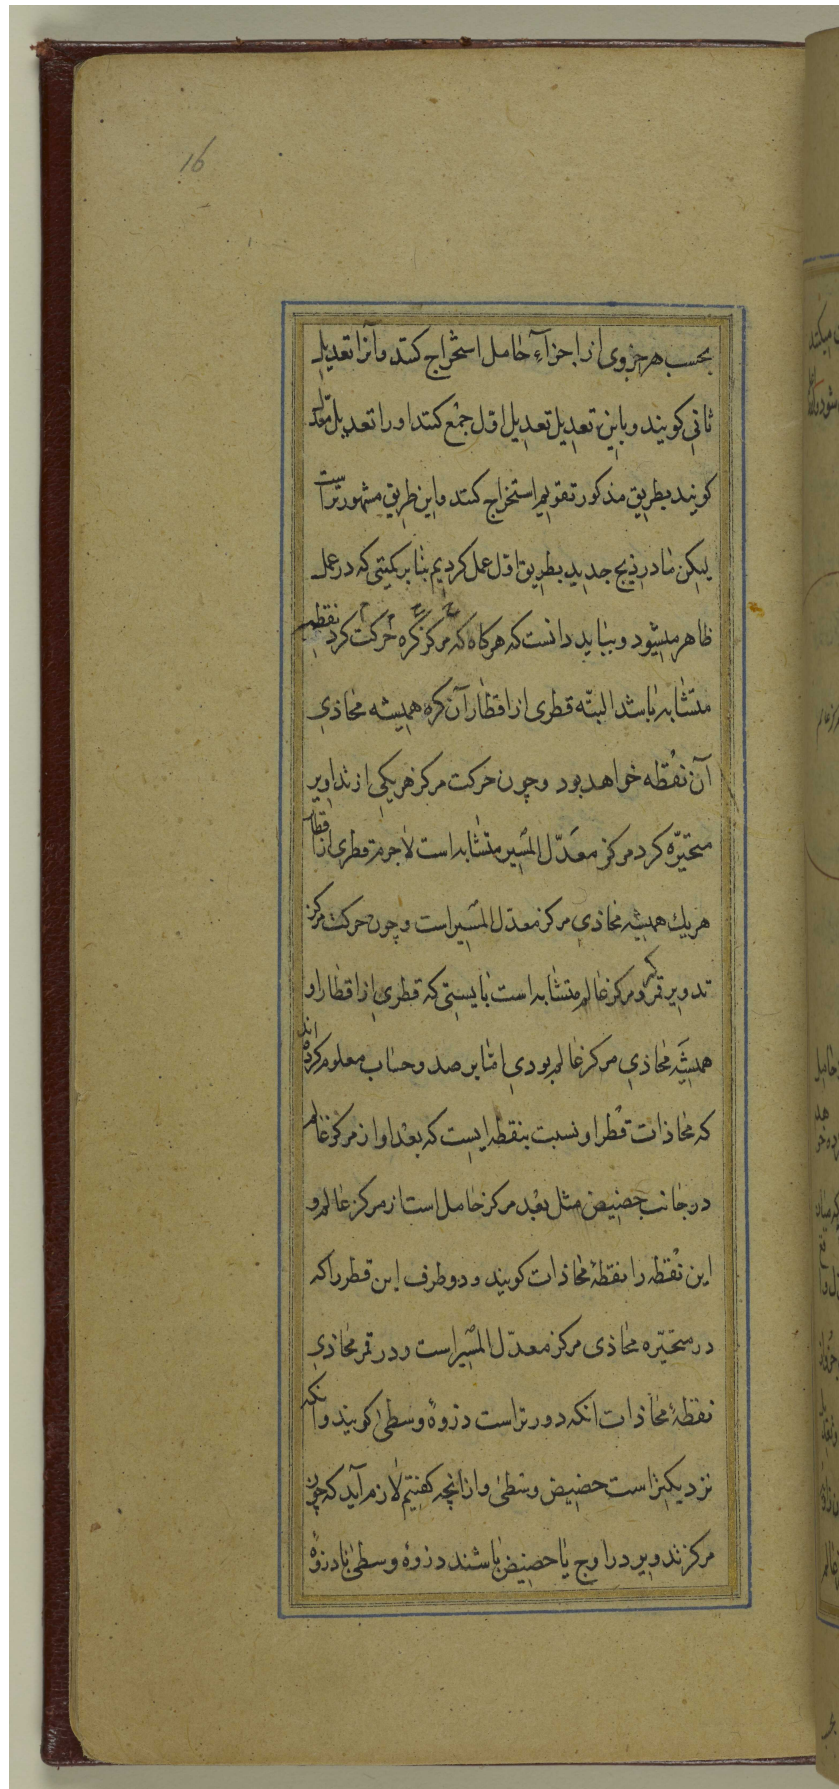 16
بحسب هر جزوی از اجزآءِ حامل استخراج کنند و آنرا تعدیل
ثانی کویند و باین تعدیل تعدیل اول جمع کنند او را تعدیل معدل
کویند بطریق مذکور تقویم استخراج کنند و این طریق مشهورتراست
لیکن ما در زیج جدید بطریق اول عمل کردیم بنابر نکیتی که در عمل
ظاهر میشود و بباید دانست که هرکاه که مرکز کره حرکت کرد نقطه
متشابه باشد البتّه قطری از اقطار آن کره همیشه محاذی
آن نقطه خواهد بود و چون حرکت مرکز هریکی از تداویر
متحیّره کرد مرکز معدّل المسیر متشابه است لاجرم قطری از اقطار
هریك همیشه محاذی مرکز معدّل المسیر است و چون حرکت مرکز
تدویر قمر که و مرکز عالم متشابه است بایستی که قطری از اقطار او
همیشه محاذی مرکز عالم بودی اما برصد و حساب معلوم کرده اند
که محاذات قطر او نسبت بنقطه ایست که بعد او از مرکز عالم
در جانب حضیض مثل بعد مرکز حامل است از مرکز عالم و
این نقطه را نقطهٔ محاذات کویند و دو طرف این قطر را که
در متحیّره محاذی مرکز معدّل المسیر است و در قمر محاذی
نقطهٔ محاذات انکه دورتراست ذروهٔ وسطی کویند وانکه
نزدیکتراست حضیض وسطی و ازانچه کفتیم لازم آید که چون
مرکز تدویر در اوج یا حضیض باشند ذروهٔ وسطی با ذروهٔ